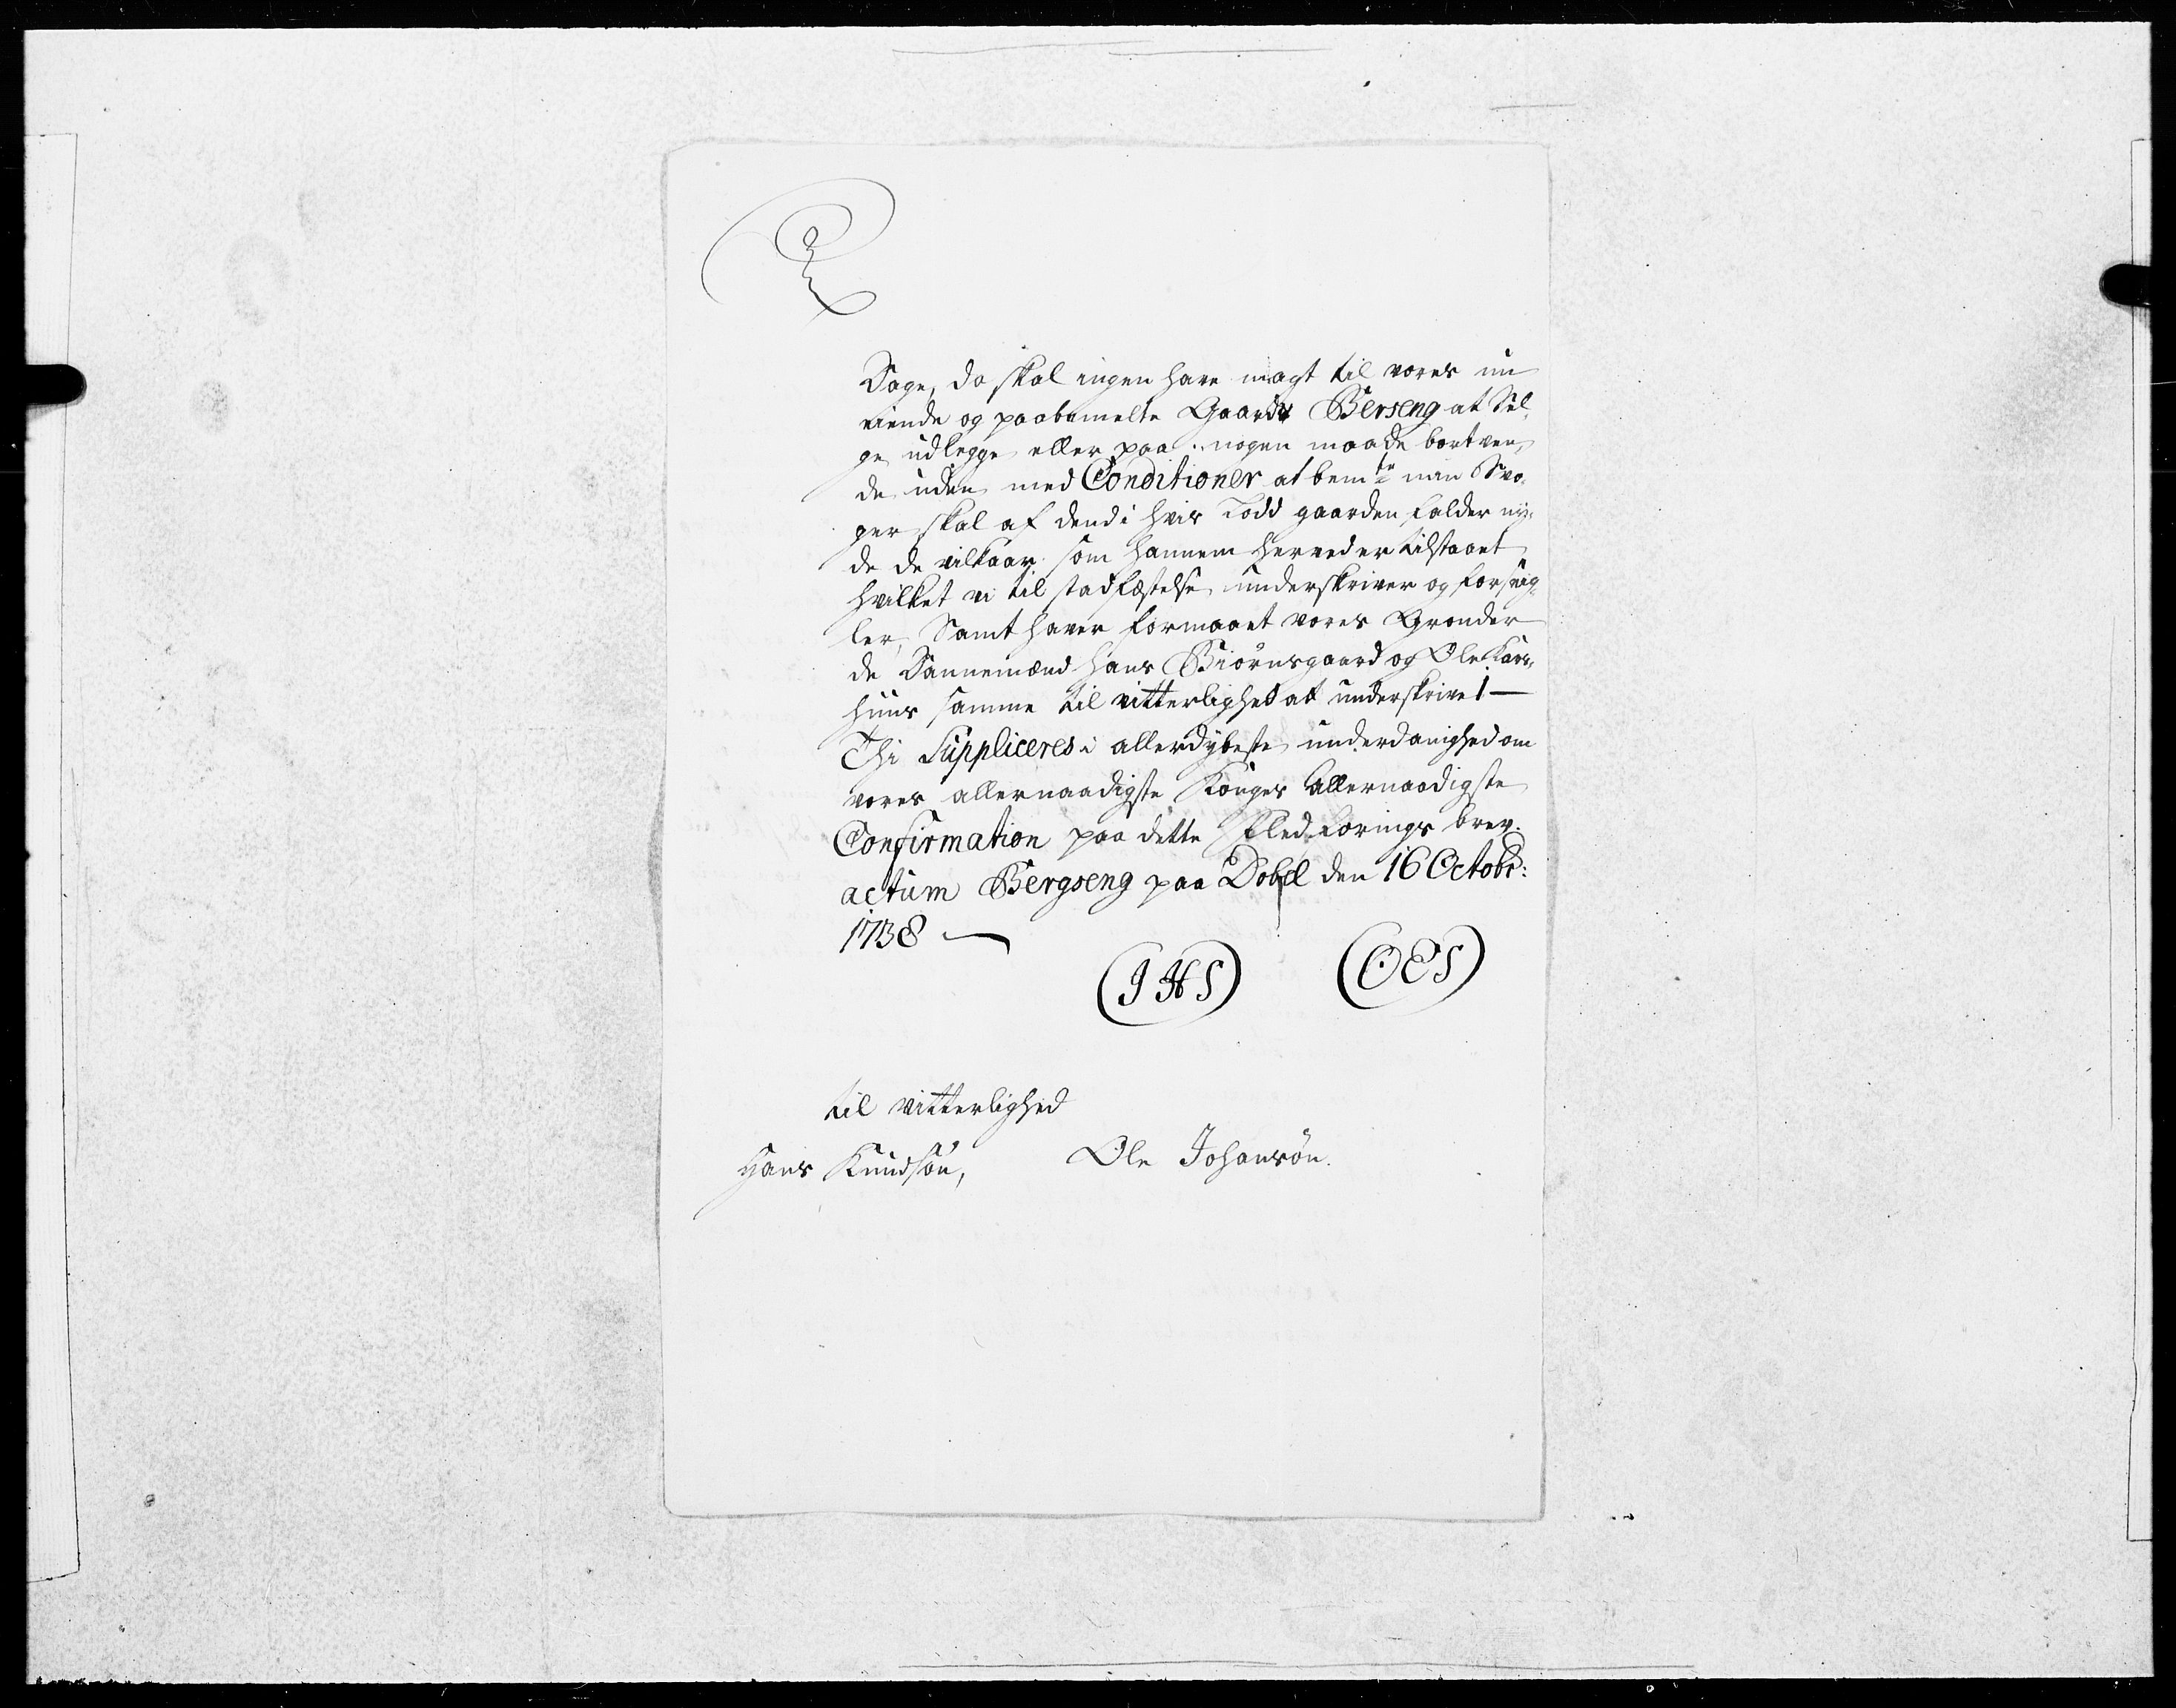 Dage, da skal ingen have magt til vores nu
eiende og paaboemelte Gaards Berseng at Sel,
ge, udlegge eller paa nogen maade bortven,
de uden med Conditioner at bemte min Svo,
ger skal af dend i hvis Lodd gaarden falder ny,
de de vilkaar som hannem herved er tilstaaet,
hvilket vi til stadfæstelse underskriver og forseig,
ler, Samt haver formaaet vores Grander
de Dannemænd Hans Biörnsgaard og Ole Kars,
huus samme til vitterlighed at underskrive
Thi Suppliceres i allerdybeste underdanighed om
vores allernaadigste Konges Allernaadigste
Confirmation paa dette Fledförings brev.
actum Bergseng paa Dobel den 16 Octobr:
1738
(JHS) (OES)
til vitterlighed
Hans Knudsön, Ole Johansön.